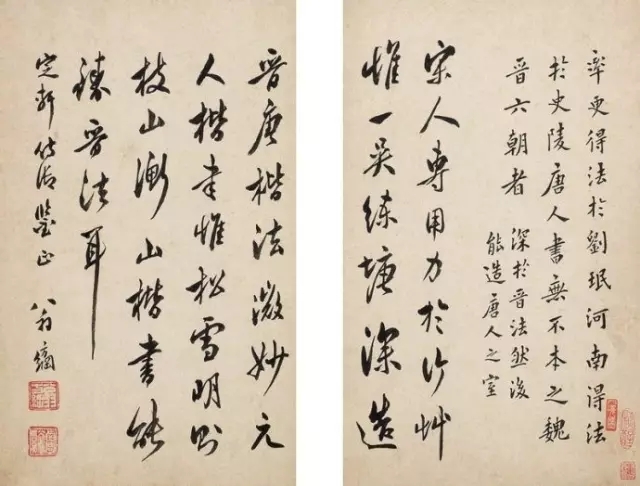 率更得法於劉珉河南得法
於史陵唐人書無不本之魏
晉六朝者
深於晉法然後
能造唐人之室
宋人專用力於行艸
惟一吳練塘深造
晉唐楷法微妙元
人楷書惟松雪明則
枝山衡山楷書能
臻晉法耳
定軒侍御鑒正 八